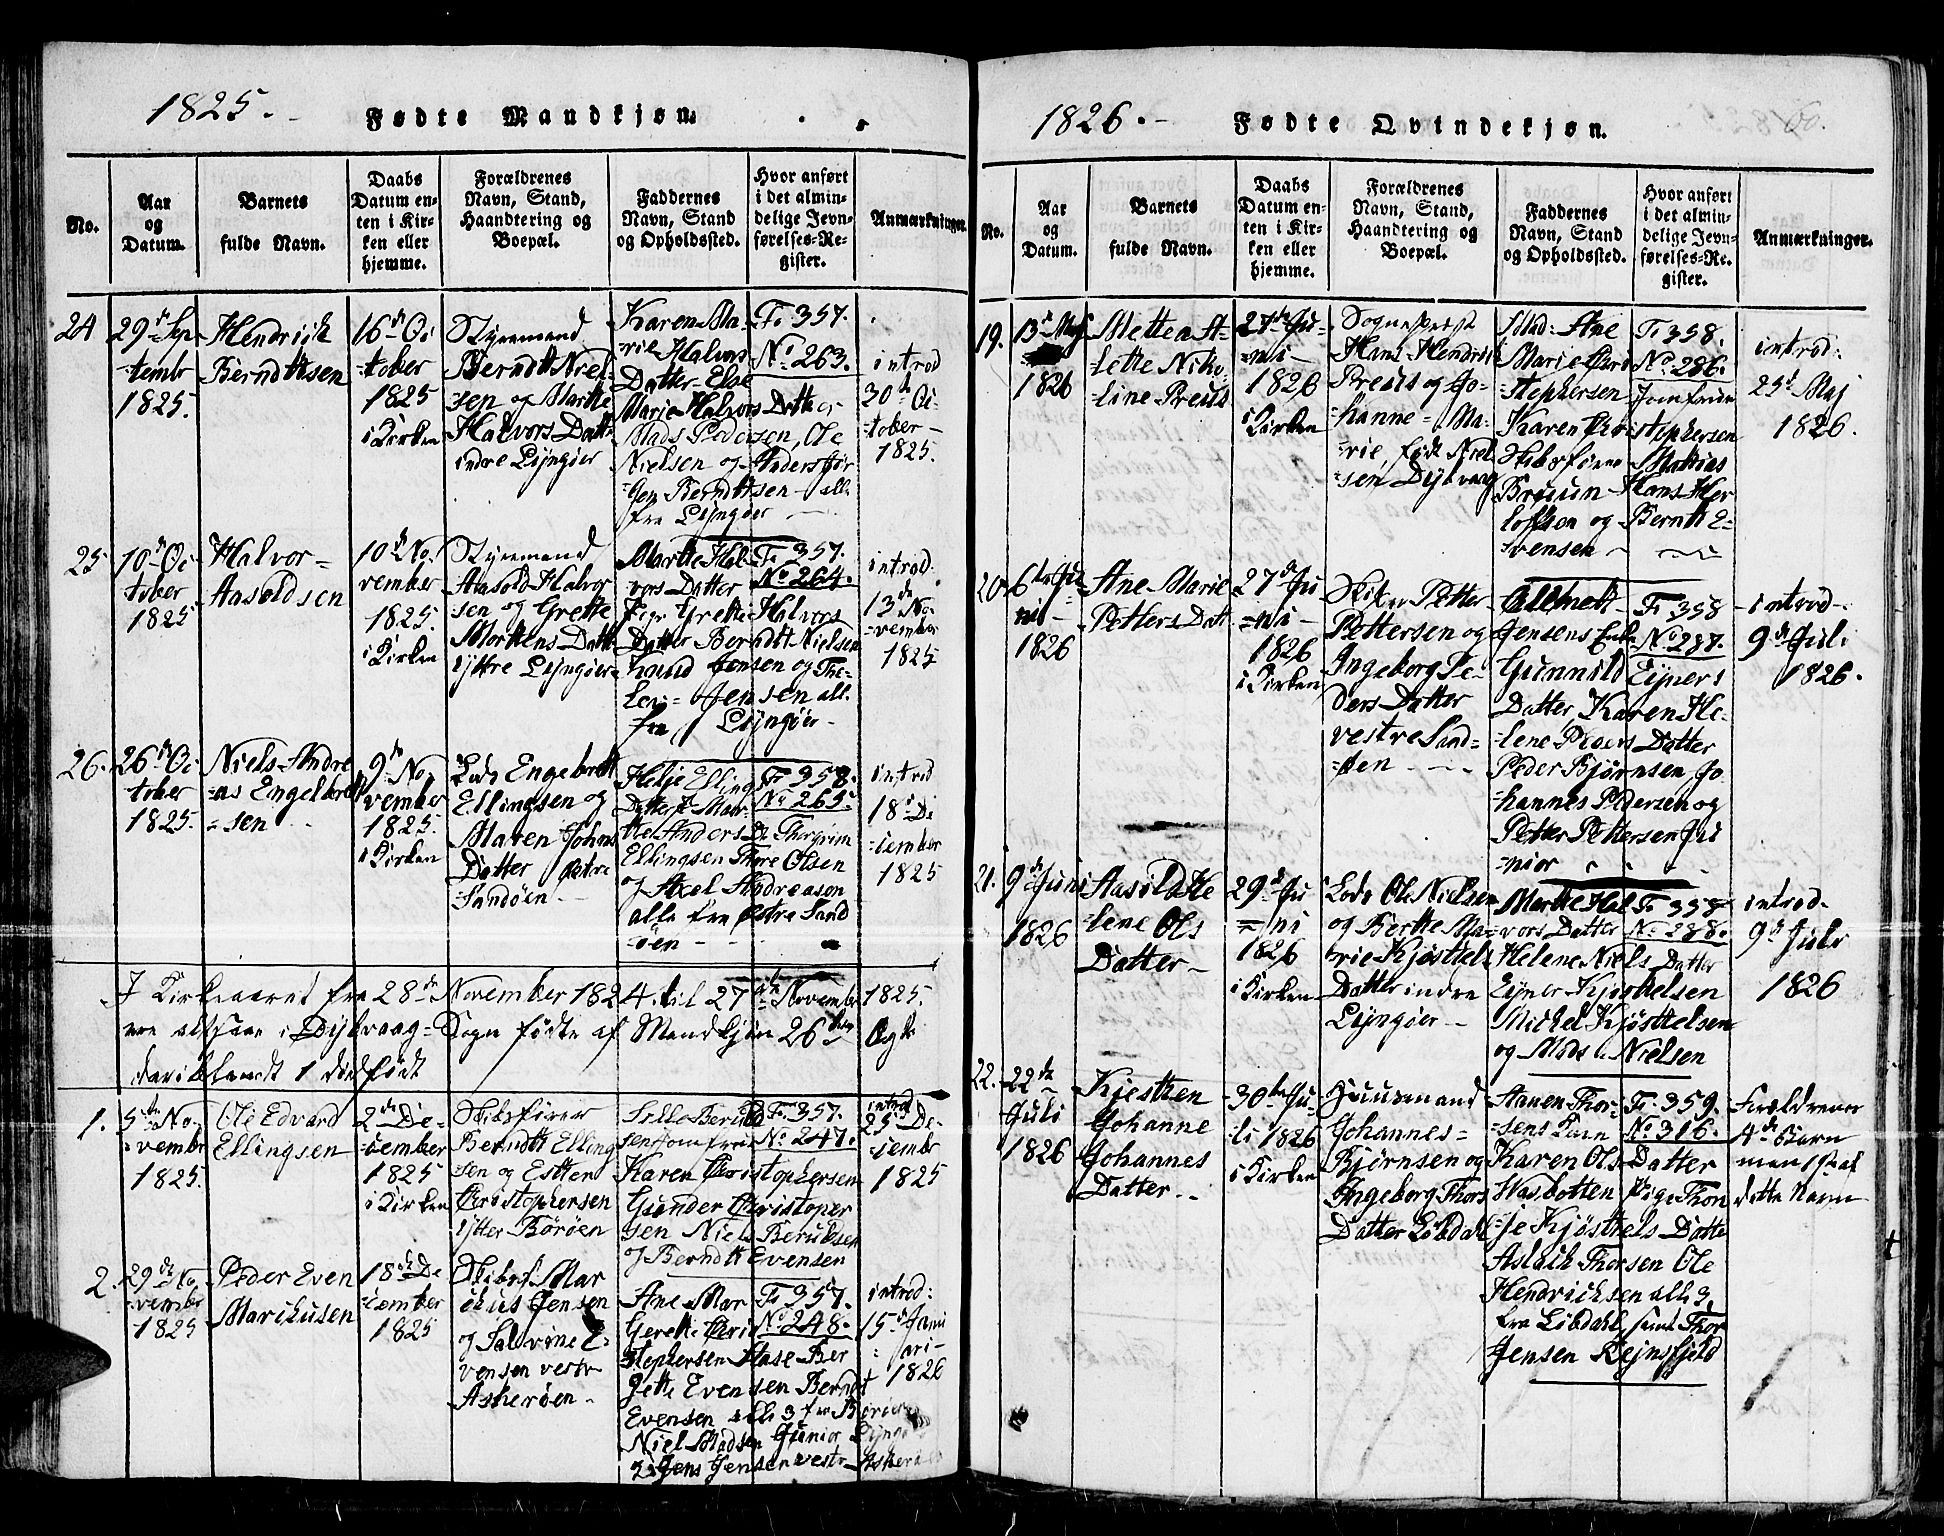 1825.
Fødte Mandkjøn.
No.
Aar
og
Datum.
Barnets
fulde Navn.
Daabs
Datum en-
ten i Kir-
ken eller
hjemme.
Forældrenes
Navn, Stand,
Haandtering og
Boepæl.
Faddernes
Navn, Stand
og Opholdssted.
Hvor anført
i det almin-
delige Jevn-
førelses-Re-
gister.
Anmærkninger.
24
29d Sep
-temb
1825.
Hendrich
Berndttsen
16d Oc
-tober
1825
i Kirken
Styremand
Berndt Niel-
-sen og Marthe
Halvors Datt
indre Lyngøer
Karen Ma-
-rie Halvors
Datter Else
Marie Halvors Datter
Mads Pedersen, Ole
Nielsen og Anders Jør
-gen Berndttsen - alle
fra Lyngøer
Fo 357.
No 263.
introd
30d Oc
-tober -
1825.
25
10d Oc
tober
1825
Halvor =
Aasoldsen
10d No.
vember
1825.
i Kirken
Styremand
Aasold Halvor
sen og Grethe
Morthens Datt
yttre Lyngøer
Marthe Hal
vors Datter
Pige Grethe Halvors
Datter Berndt Nielsen
Jensen og The-
Jensen all.
fra Lyngøer
Fo 357.
No 264.
introd.
13d No-
=vember
1825
26.
26d Oc
tober
1825.
Niels Andre
=as Engelbrett
=sen
9d No
vember
1825.
i Kirken
Lods Engebrett
Ellingsen og
Maren Johns
Datter Østre
Sandøen
Helje Ellings
Datter Mar-
the Anders D. Thorgrim
Ellingsen Thore Olsen
og Axel Andreasen
alle fra Østre Sand
=øen
Fo 358.
No 265.
introd
18d De
=cember
1825
I Kirkeaaret fra 28de November 1824. til 27de November 1825.
ere altsaa i Dybvaag Sogn fødte af Mandkjøn 26
deriblandt 1 dødfødt
1.
5te No-
-vembr
1825.
Ole Edvard
Ellingsen
2de De-
=cember
1825
i Kirken
Skibsfører
Berndtt Elling
sen og Esther
Christophersen
ytter Børøen
Jomfrue
Karen Christophersen
Gunder Christoper
sen Niels
og Berndtt Evensen
Fo 357.
No 247.
introd
25d De-
cembr
1825
2.
29de No
-vember
1825
Peder Even
Marchusen
18d De
-cember
1825
Skibsf. Mar
chus Jensen
og Salvine E-
vensen vestr
Askerøen -
Ane Mar
Grethe Chri
stophersen Aase Ber
gette Evensen Berndt
Evensen alle 3 fra Børøen
Niel Madsen Junior Lyngøer
og Jens Jensen vestr Askerøen
Fo 357.
No 248.
introd:
15d Janu
ari -
1826
1826.
Fødte Qvindekjøn.
60.
No.
Aar
og
Datum.
Barnets
fulde Navn.
Daabs
Datum en-
ten i Kir-
ken eller
hjemme.
Forældrenes
Navn, Stand,
Haandtering og
Boepæl.
Faddernes
Navn, Stand
og Opholdssted.
Hvor anført
i det almin-
delige Jevn-
førelses-Re-
gister.
Anmærkninger.
19.
13d Maj
1826
Metten A-
lette Niko-
line Preüs
27de Ju-
=ni -
1826
i Kirken
Sognepræst
Hans Hendrich
Preüs og Jo-
hanne Ma-
rie født Niel
sen, Dybvaag
Ane
Marie Chri
-stophersen Jomfrue
Karen Christophersen
Skibsførerne Mathias
Bruun Hans Her
lofsen og Bernth E-
vensen
Fo 358.
No 286.
introd:
25d Maj
1826.
20.
6te Ju
ni -
1826
Ane Marie
Petters Datt
27de Ju
=ni -
1826
i Kirken
Skiper Petter
Pettersen og
Ingeborg Pe-
ders Datter
vestre Sand=
=øen
Jensens
Gunnild Eyners
Datter Karen He-
-lene Peders Datter
Peder Bjørnsen, Jo
-hannes Pedersen og
Petter Pettersen Ju
=nior
Fo 358
No 287.
- introd -
9de Juli
1826.
21.
9de Juni
1826
Aasild He
lene Ols
Datter -
29de Ju
=ni
1826
i Kirken
Lods Ole Nielsen
og Berthe Ma=
rie Kjøsttels
Datter indre
Lyngøer -
Marthe Hal
vors Datter
Helene Niels Datter
Eyner Kjøsttelsen
Michel Kjøsttelsen
og Mads Nielsen
Fo 358
No 288.
introd.
9d Juli
1826
22.
22de
Juli
1826
Kjesthen
Johanne
Johannes
Datter -
30te Ju-
li 1826
i Kirken
Huusmand
Johannes=
Bjørnsen og
Ingeborg Thors
Datter Løbdal
Thor-
sens
Karen Ols Datter
Wasbotten Pige Thon
=je Kjøsttels Datte
Aslach Thorsen Ole
Hendrichsen alle 3
fra Løbdal, samt Thor
Jensen Rejnsfjeld
Fo 359.
No 316.
Forældrenes
4de Barn
men 1ste af
dette Navn